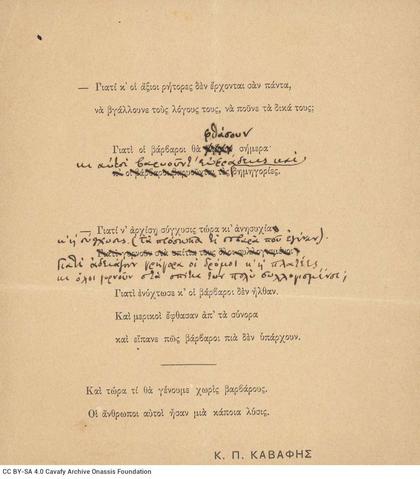 — Γιατί κ' οἱ ἄξιοι ρήτορες δὲν ἔρχονται σὰν πάντα,
νὰ βγάλλουνε τοὺς λόγους τους, νὰ ποῦνε τὰ δικά τους;
φθάσουν
Γιατὶ οἱ βάρβαροι θὰ σήμερα·
κι αὐτοὶ βαρυοῦντ' εὐφράδειες καὶ
δημηγορίες.
— Γιατί ν' ἀρχίσῃ σύγχυσις τώρα κι' ἀνησυχία
κ' ἡ σύγχυσις. (Τὰ πρόσωπα τί σοβαρὰ ποὺ ἔγιναν).
Γιατί ἀδειάζουν γρήγορα οἱ δρόμοι κ' ἡ πλατέες
κι ὅλοι γυρνοῦν στὰ σπίτια των πολὺ συλλογισμένοι;
Γιατὶ ἐνύχτωσε κ' οἱ βάρβαροι δὲν ἦλθαν.
Καὶ μερικοὶ ἔφθασαν ἀπ' τὰ σύνορα
καὶ εἴπανε πῶς βάρβαροι πιὰ δὲν ὑπάρχουν.
Καὶ τώρα τί θὰ γένουμε χωρὶς βαρβάρους.
Οἱ ἄνθρωποι αὐτοὶ ἦσαν μιὰ κάποια λύσις.
Κ. Π. ΚΑΒΑΦΗΣ
CC BY-SA 4.0 Cavafy Archive Onassis Foundation